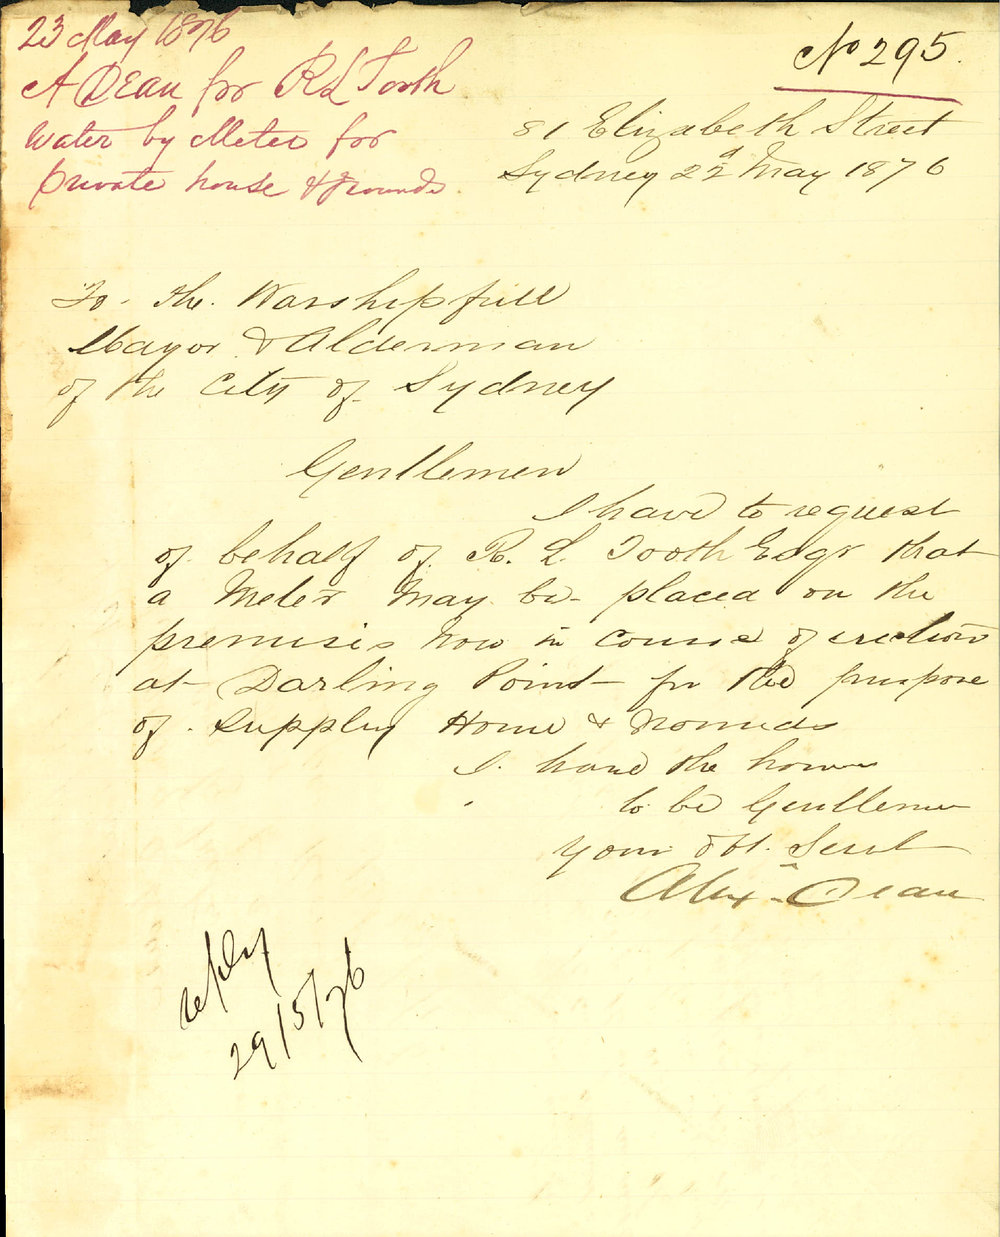 23 May 1876
A Dean for R L Tooth
Water by Meter for
private house & grounds
No 295.
81 Elizabeth Street
Sydney 22d May 1876
To. the. Worshipfull
Mayor & Alderman
of the City of Sydney
Gentlemen
I have to request
of behalf of R. L. Tooth Esqr that
a Meter May be placed on the
premises Now in course of erection
at Darling Point for the purpose
of supply House & Grounds
I have the honor
to be Gentlemen
Your Obt. Servt
Alex. Dean
reply
29/5/76